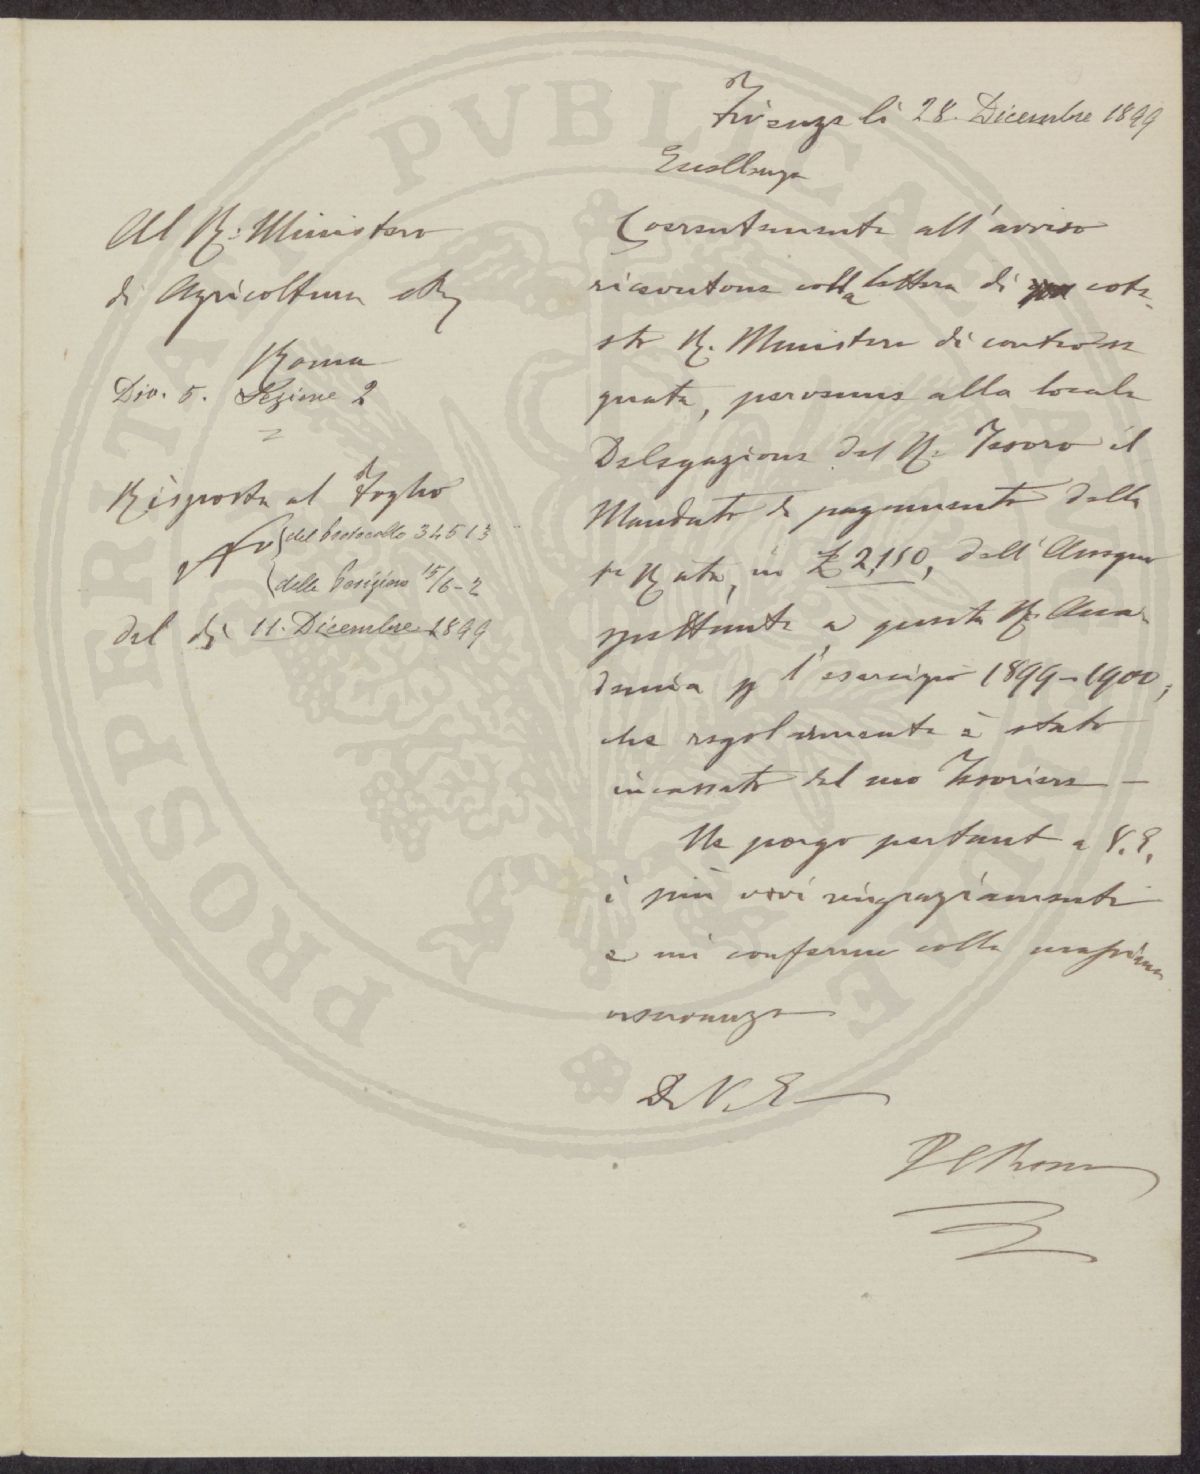 Firenze li 28. Dicembre 1899
Eccellenza
Al R. Ministero
di Agricoltura
Roma
Div. 5. Sezione 2
Risposta al Foglio
del Protocollo 34513
della Posizione 15/6-2
del dì 11. Dicembre 1899
Coerentemente all'avviso
ricevutone colla lettera di cote-
sto R. Ministero di controse
gnata, pervenne alla locale
Delegazione del R. Tesoro il
Mandato di pagamento della
1a Rata, in £ 2,150, dell'Assegno
spettante a questa R. Acca-
demia p l'esercizio 1899-1900,
che regolarmente è stato
incassato dal suo Tesoriere —
Ne porgo pertanto a V.E.
i più vivi ringraziamenti
e mi confermo colla massima
osservanza
Di V. E.
PROSPERITATI PVBLICAE AVGENDAE